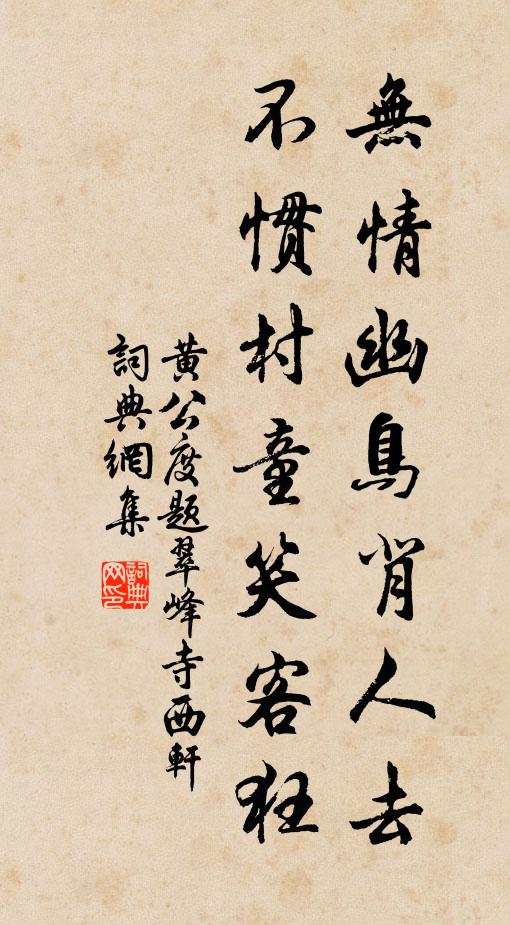 無情幽鳥背人去
不慣村童笑客狂
黃公度題翠峰寺西軒
詞典網集
詞典网印